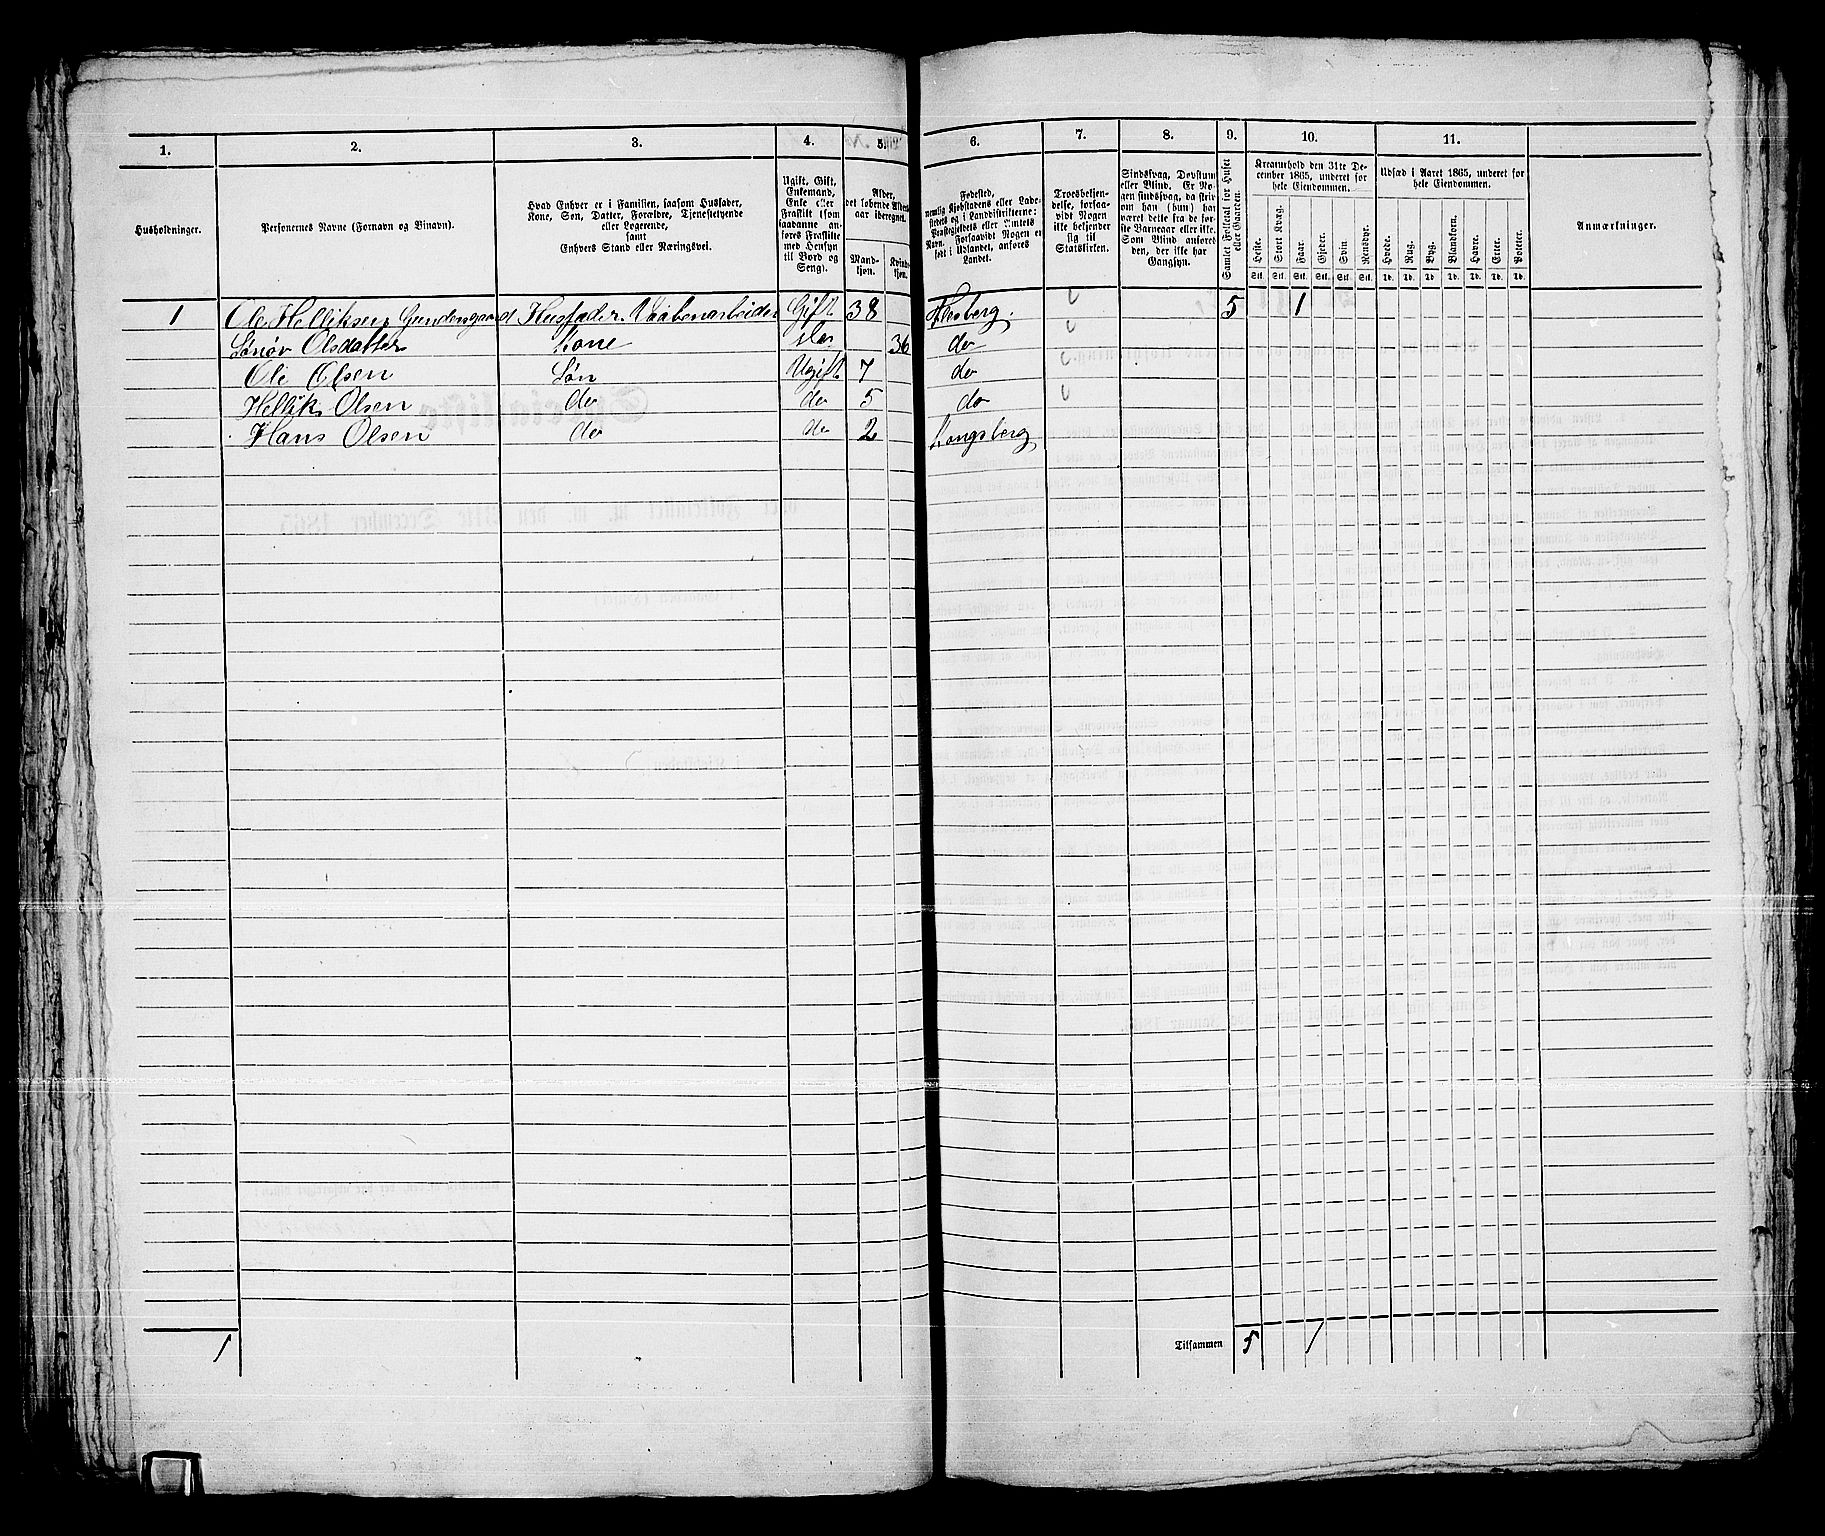 1. 2. 3. 4. 5. 6. 7. 8. 9. 10. 11.
Husholdninger.
Personernes Navne (Fornavn og Tilnavn).
Hvad Enhver er i Familien, saasom Husfader,
Kone, Søn, Datter, Forældre, Tjenestetyende
eller Logerende,
samt
Enhvers Stand eller Næringsvei.
Ugift, Gift,
Enkemand,
Enke eller
Fraskilt (som
saadanne an-
føres Fraskilte
med Hensyn
til Bord og
Seng).
Alder,
det løbende Alders-
aar iberegnet.
Mand-
kjøn.
Kvind-
kjøn.
Fødested,
nemlig Kjøbstadens eller Lade-
stedets og i Landdistrikterne:
Præstegjeldets eller Amtets
Navn. Forsaavidt Nogen er
født i Udlandet, anføres
Landet.
Troesbekjen-
delse, forsaa-
vidt Nogen
ikke bekjender
sig til
Statskirken.
Sindssvag, Døvstum
eller Blind. Er No-
gen sindssvag, da skrives
om han (hun) har
været dette fra de før-
ste Barneaar eller ikke.
Som Blind anføres
den, der ikke har
Gangsyn.
Samlet Folketal for Huset
eller Gaarden.
Kreaturhold den 31te De-
cember 1865, underet for
hele Eiendommen.
Heste. Stort Kvæg. Faar. Gjeder. Svin. Rensdyr.
Stk. Stk. Stk. Stk. Stk. Stk.
Udsæd i Aaret 1865, underet for
hele Eiendommen.
Hvede. Rug. Byg. Blandkorn. Havre. Erter. Poteter.
Td. Td. Td. Td. Td. Td. Td.
Anmærkninger.
1 Ole Helliksen Gundesgaard Husfader. Vaabenarbeider Gift 38 Flesberg. 5 1
Sønøv Olsdatter Kone do 36 do
Ole Olsen Søn Ugift 7 do
Hellik Olsen do do 5 do
Hans Olsen do do 2 Kongsberg
1 Tilsammen 5 1